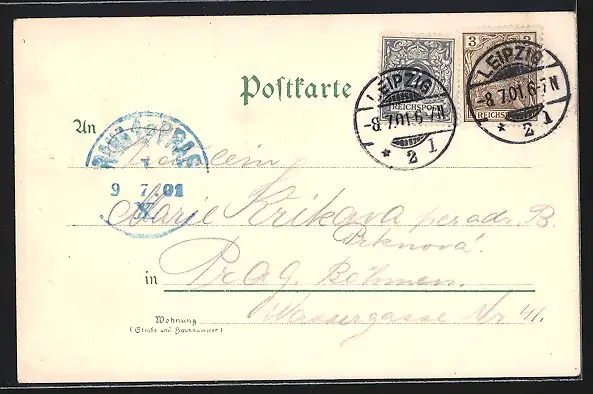 Postkarte
3 3
REICHSPOST
REICHSPOST
LEIPZIG
-8.7.01.6-7N
* 2 1
LEIPZIG
-8.7.01.6-7N
* 2 1
An
PRAG
9 7.01
Fräulein
Marie Krikava per adr. B.
Prknová.
in Prag. Böhmen.
Wassergasse Nr 41.
Wohnung
(Straße und Hausnummer)